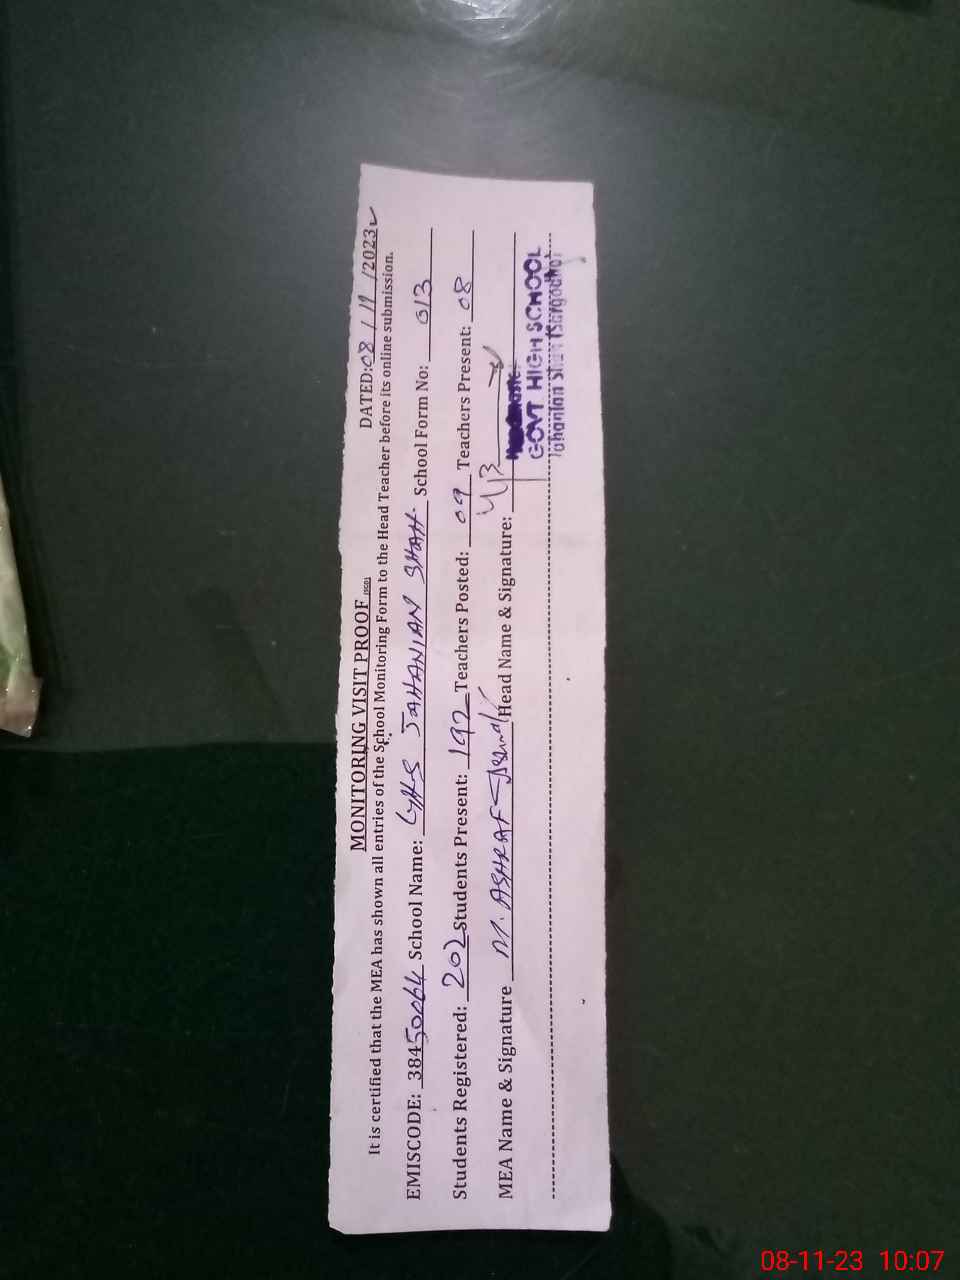 MONITORING VISIT PROOF
DATED: 08/11/2023
It is certified that the MEA has shown all entries of the School Monitoring Form to the Head Teacher before its online submission.
EMISCODE: 38450064 School Name: GHS JAHANIAN SHAH School Form No: 013
Students Registered: 202 Students Present: 192 Teachers Posted: 09 Teachers Present: 08
MEA Name & Signature M. ASHRAF Head Name & Signature:
GOVT HIGH SCHOOL
Jahanian Shah (Sargodha)
08-11-23 10:07